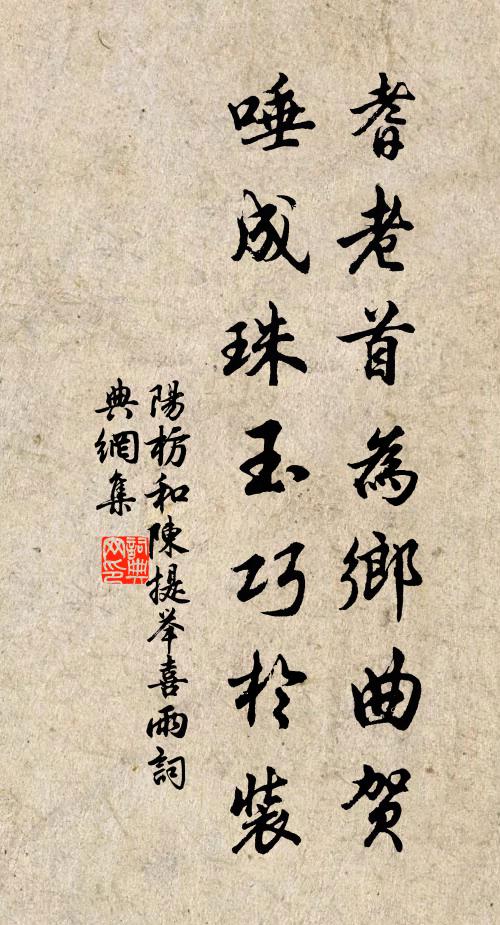 耆老首為鄉曲賀
唾成珠玉巧於裝
陽枋和陳提举喜雨詞
典網集
詞典网印